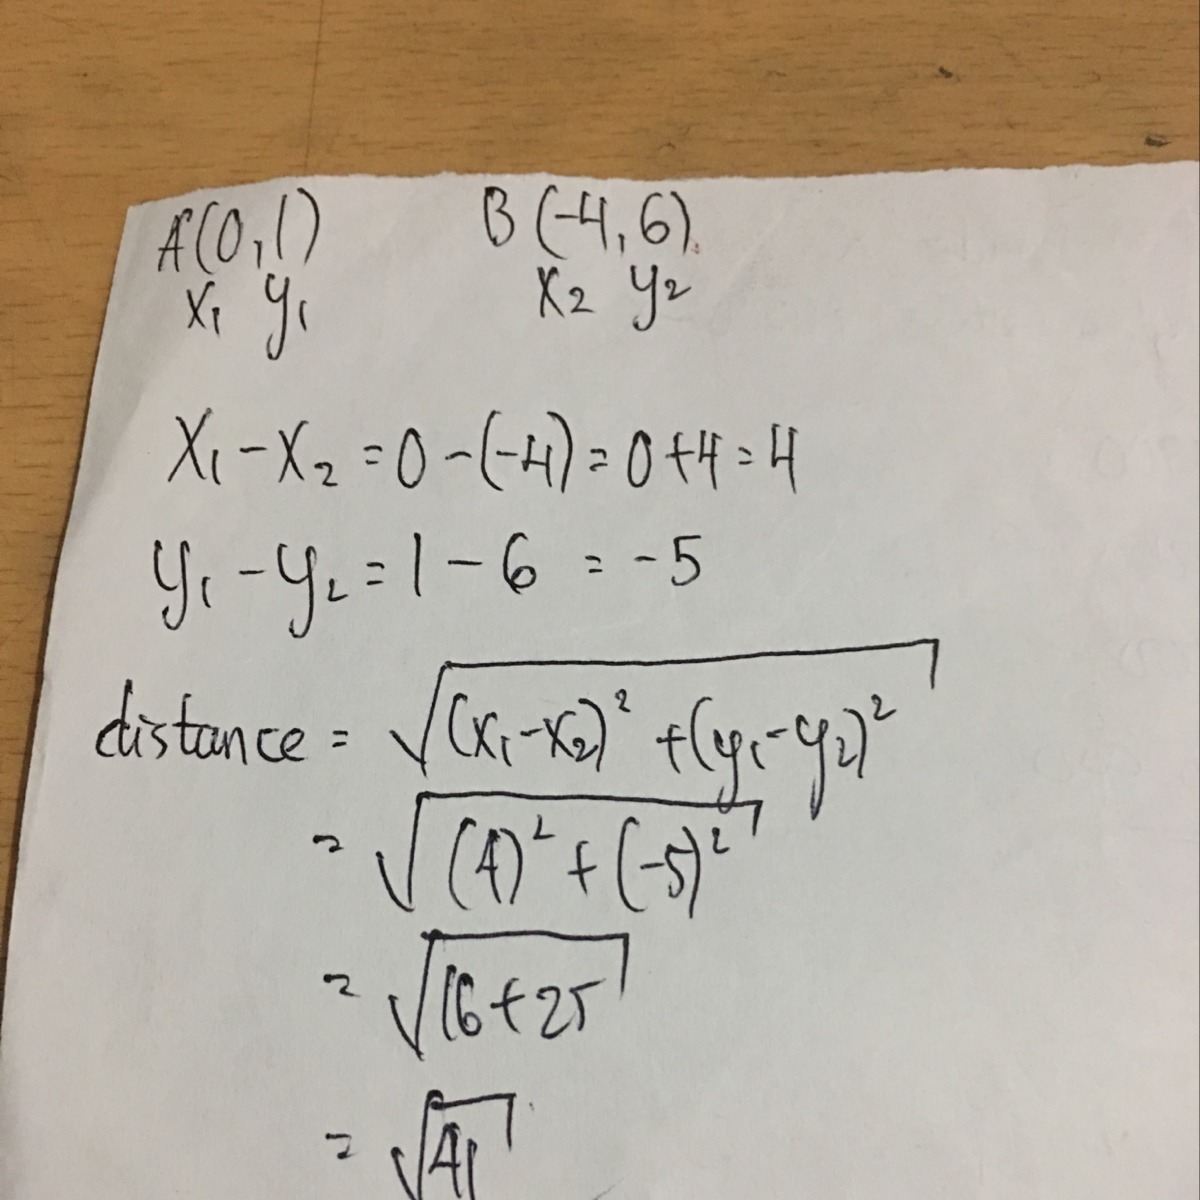 A(0,1) B(-4,6)
x₁ y₁ x₂ y₂
x₁-x₂=0-(-4)=0+4=4
y₁-y₂=1-6=-5
distance = √(x₁-x₂)²+(y₁-y₂)²
= √(4)²+(-5)²
= √16+25
= √41